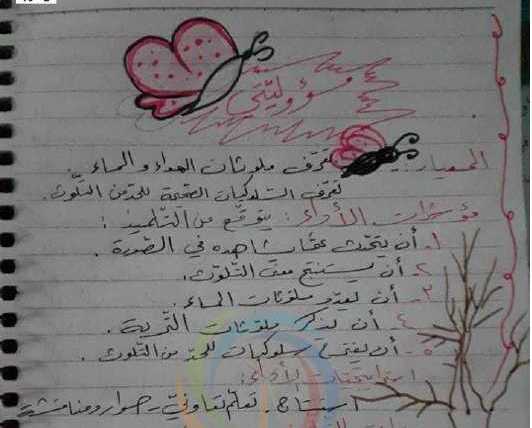 مسؤوليتي
المعيار: تعرّف ملوثات الهواء والماء.
تعرّف السلوكيات الصحيحة للحد من التلوّث.
مؤشرات الأداء: يتوقّع من التلميذ:
١. أن يتحدّث عمّا يشاهده في الصّورة.
٢. أن يستنتج معنى التلوّث.
٣. أن يعدّد ملوثات الماء.
٤. أن يذكر ملوثات التّربة.
٥. أن يقترح سلوكيات للحدّ من التلوث.
استراتيجيات الأداء:
استنتاج. تعلّم تعاوني - حوار ومناقشة